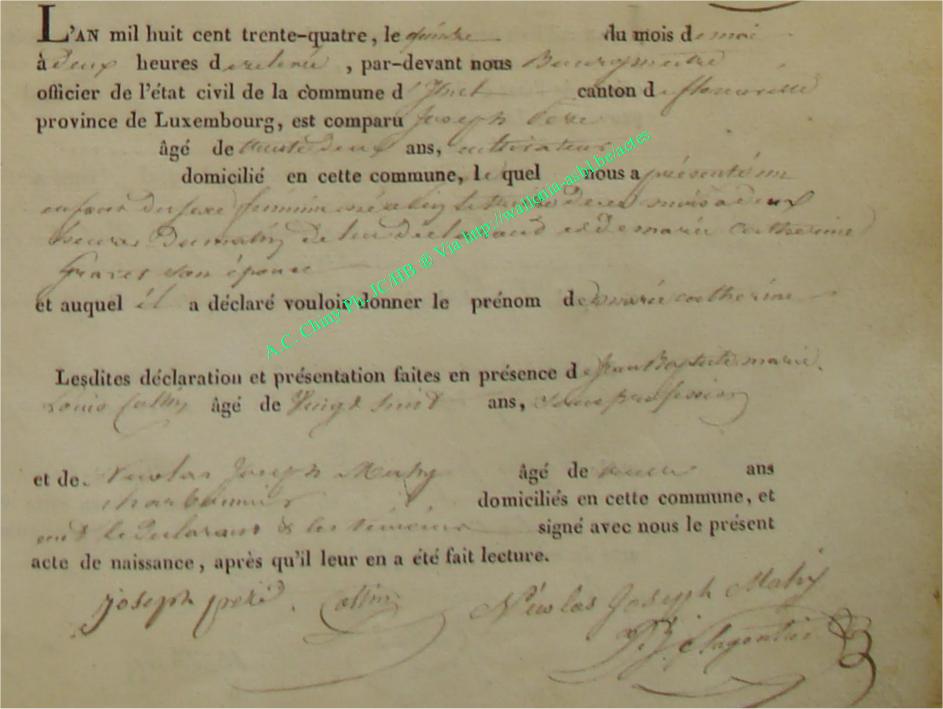 L'AN mil huit cent trente-quatre, le quinze du mois de mai
à deux heures de relevée, par-devant nous Bourgmestre
officier de l'état civil de la commune d' canton de florenville
province de Luxembourg, est comparu Joseph
âgé de trente deux ans, cultivateur
domicilié en cette commune, le quel nous a présenté un
enfant du sexe féminin né à de ce mois à deux
heures du matin de lui déclarant et de marie catherine
son épouse
et auquel il a déclaré vouloir donner le prénom de marie catherine
Lesdites déclaration et présentation faites en présence de Jean Baptiste marie
Louis Collin âgé de Vingt huit ans, sans profession
et de Nicolas Joseph Mahy âgé de ans
charbonnier domiciliés en cette commune, et
ont le déclarant & les témoins signé avec nous le présent
acte de naissance, après qu'il leur en a été fait lecture.
joseph Collin Nicolas Joseph Mahy
A.C. Chiny Ph. JC/HB ® Via http://wallonia-asbl.be/actes